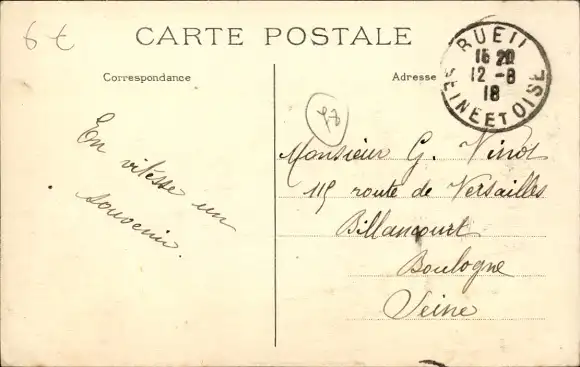 6 €
CARTE POSTALE
Correspondance
Adresse
RUEIL
15 20
12 - 8
18
SEINE ET OISE
En vitesse un
souvenir.
Monsieur G. Vinot
115 route de Versailles
Billancourt
Boulogne
Seine